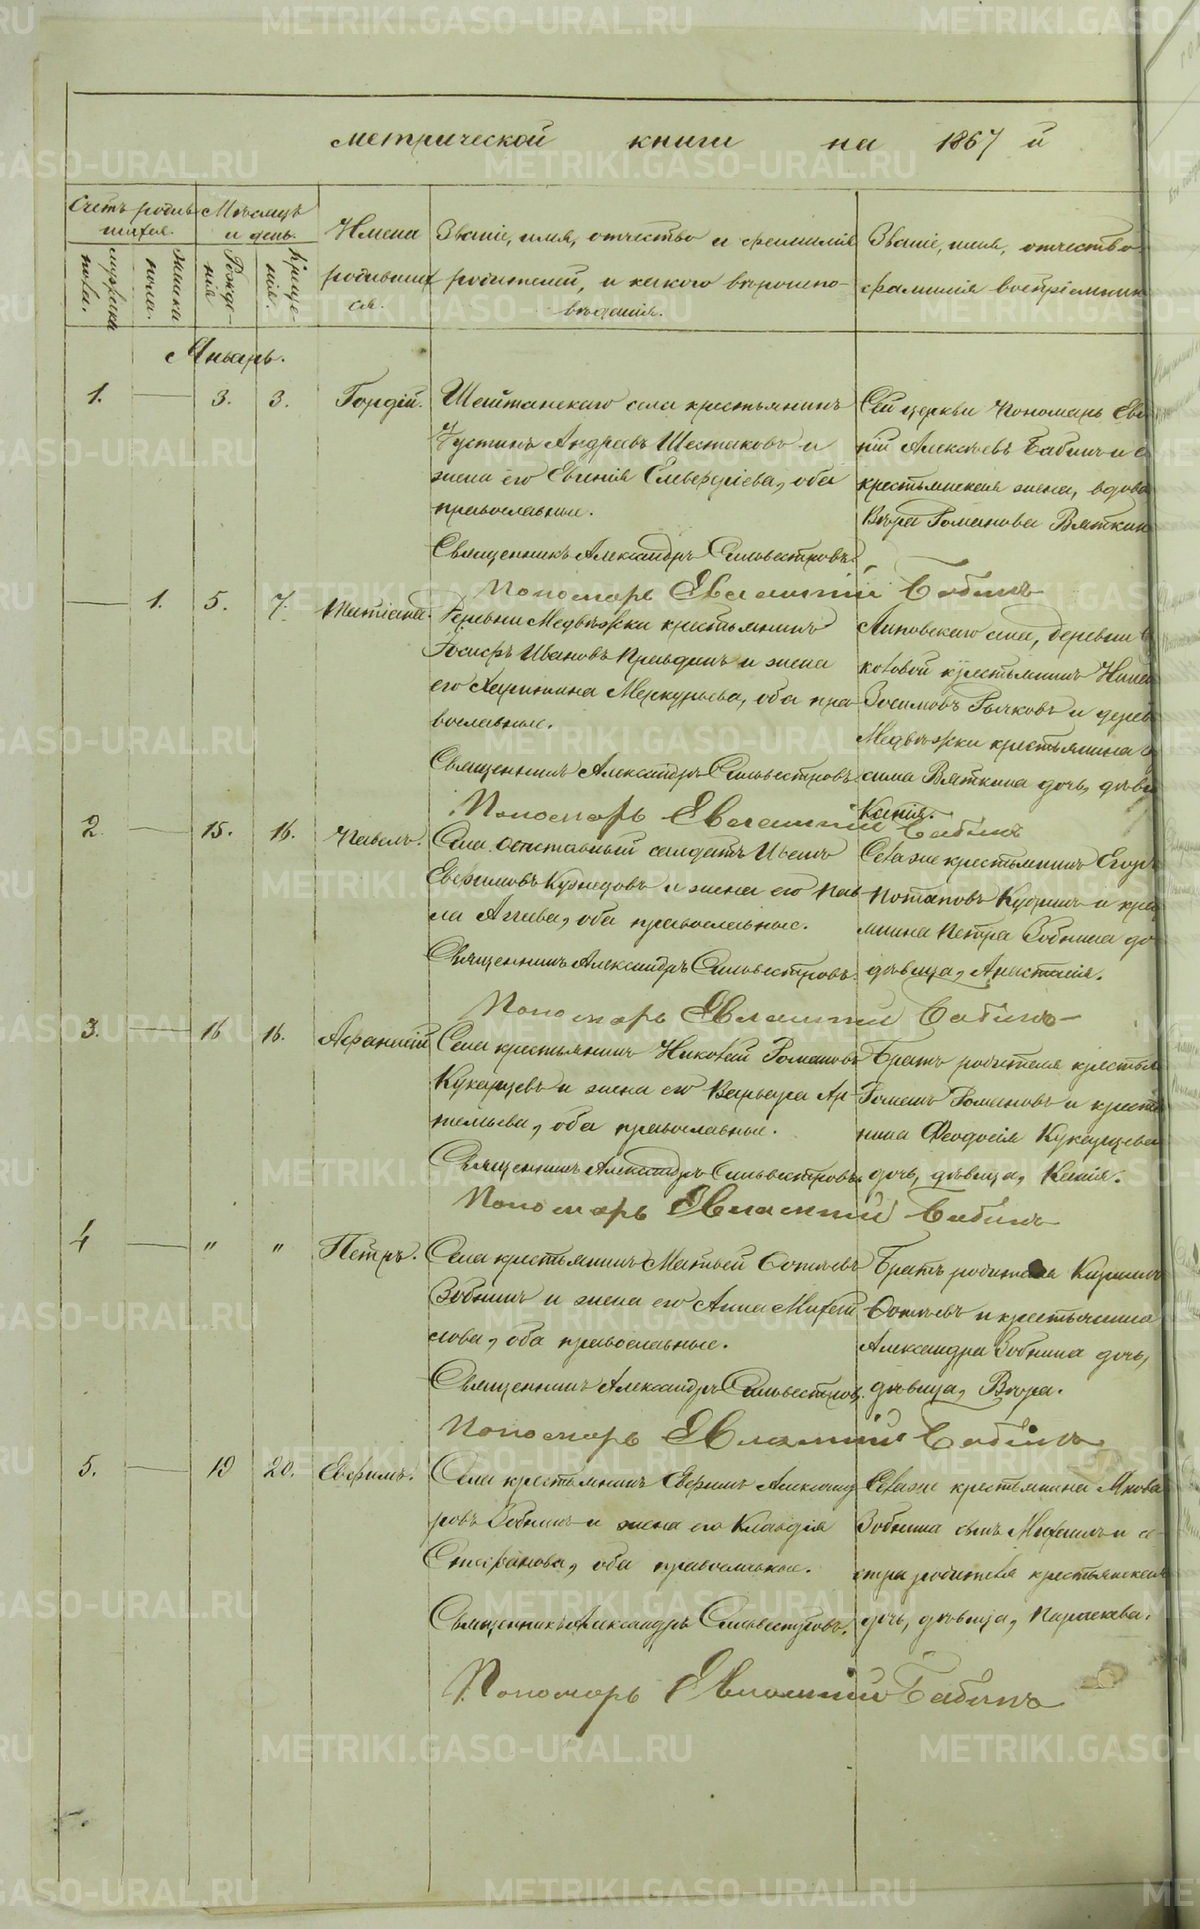 метрической книги на 1867 й
Счетъ родив-
шихся.
Мѣсяцъ
и день.
мужска
пола.
женска
пола.
Рожде-
нія
Креще-
нія.
Имена
родивших
ся.
Званіе, имя, отчество и фамилія
родителей, и какого вѣроиспо-
вѣданія.
Званіе, имя, отчество
фамилія воспріемник
Январь.
1. 3. 3. Гордій.
Шайтанскаго села крестьянинъ
Іустинъ Андреевъ Шестаковъ и
жена его Евгенія Елевферіева, оба
православные.
Священникъ Александръ Сильвестровъ.
Пономарь Евлампій Бабинъ
Сей церкви Пономарь Евл
пій Алексѣевъ Бабинъ и
крестьянская жена, вдова
Вѣра Романова Вяткин
1. 5. 7. Татіана.
Деревни Медвѣжки крестьянинъ
Іосифъ Ивановъ Правдинъ и жена
его Харитина Меркурьева, оба пра-
вославные.
Священникъ Александръ Сильвестровъ.
Пономарь Евлампій Бабинъ
Липовскаго села, деревни
ковой крестьянинъ
Зосимовъ Рычковъ и дерев
Медвѣжки крестьянина
сима Вяткина дочь, дѣви
Ксенія.
2. 15. 16. Павелъ.
Села отставный солдатъ Иванъ
Евфимовъ Кузнецовъ и жена его Пав-
ла Аггеева, оба православные.
Священникъ Александръ Сильвестровъ.
Пономарь Евлампій Бабинъ
Села же крестьянинъ Егоръ
Потаповъ и кре
янина Петра Зобнина до
дѣвица, Анастасія.
3. 16 16. Афанасій
Села крестьянинъ Николай Романовъ
Кукарцевъ и жена его Варвара Ар-
темьева, оба православные.
Священникъ Александръ Сильвестровъ.
Пономарь Евлампій Бабинъ
Братъ родителя крестья
Романъ Романовъ и крестья
нина Феодосія Кукарцева
дочь, дѣвица, Ксенія.
4 " " Петръ.
Села крестьянинъ Матвей Фотіевъ
Зобнинъ и жена его Анна Михай
лова, оба православные.
Священникъ Александръ Сильвестровъ.
Пономарь Евлампій Бабинъ
Братъ родителя Кириллъ
Фотіевъ и крестьянина
Александра Зобнина дочь,
дѣвица, Вѣра.
5. 19 20. Евфимъ.
Села крестьянинъ Евфимъ Александ
ровъ Зобнинъ и жена его Клавдія
Стефанова, оба православные.
Священникъ Александръ Сильвестровъ.
Пономарь Евлампій Бабинъ
Села же крестьянина Якова
Зобнина сынъ Михаилъ и се-
стра родителя крестьянская
дочь, дѣвица, Параскева.
METRIKI.GASO-URAL.RU